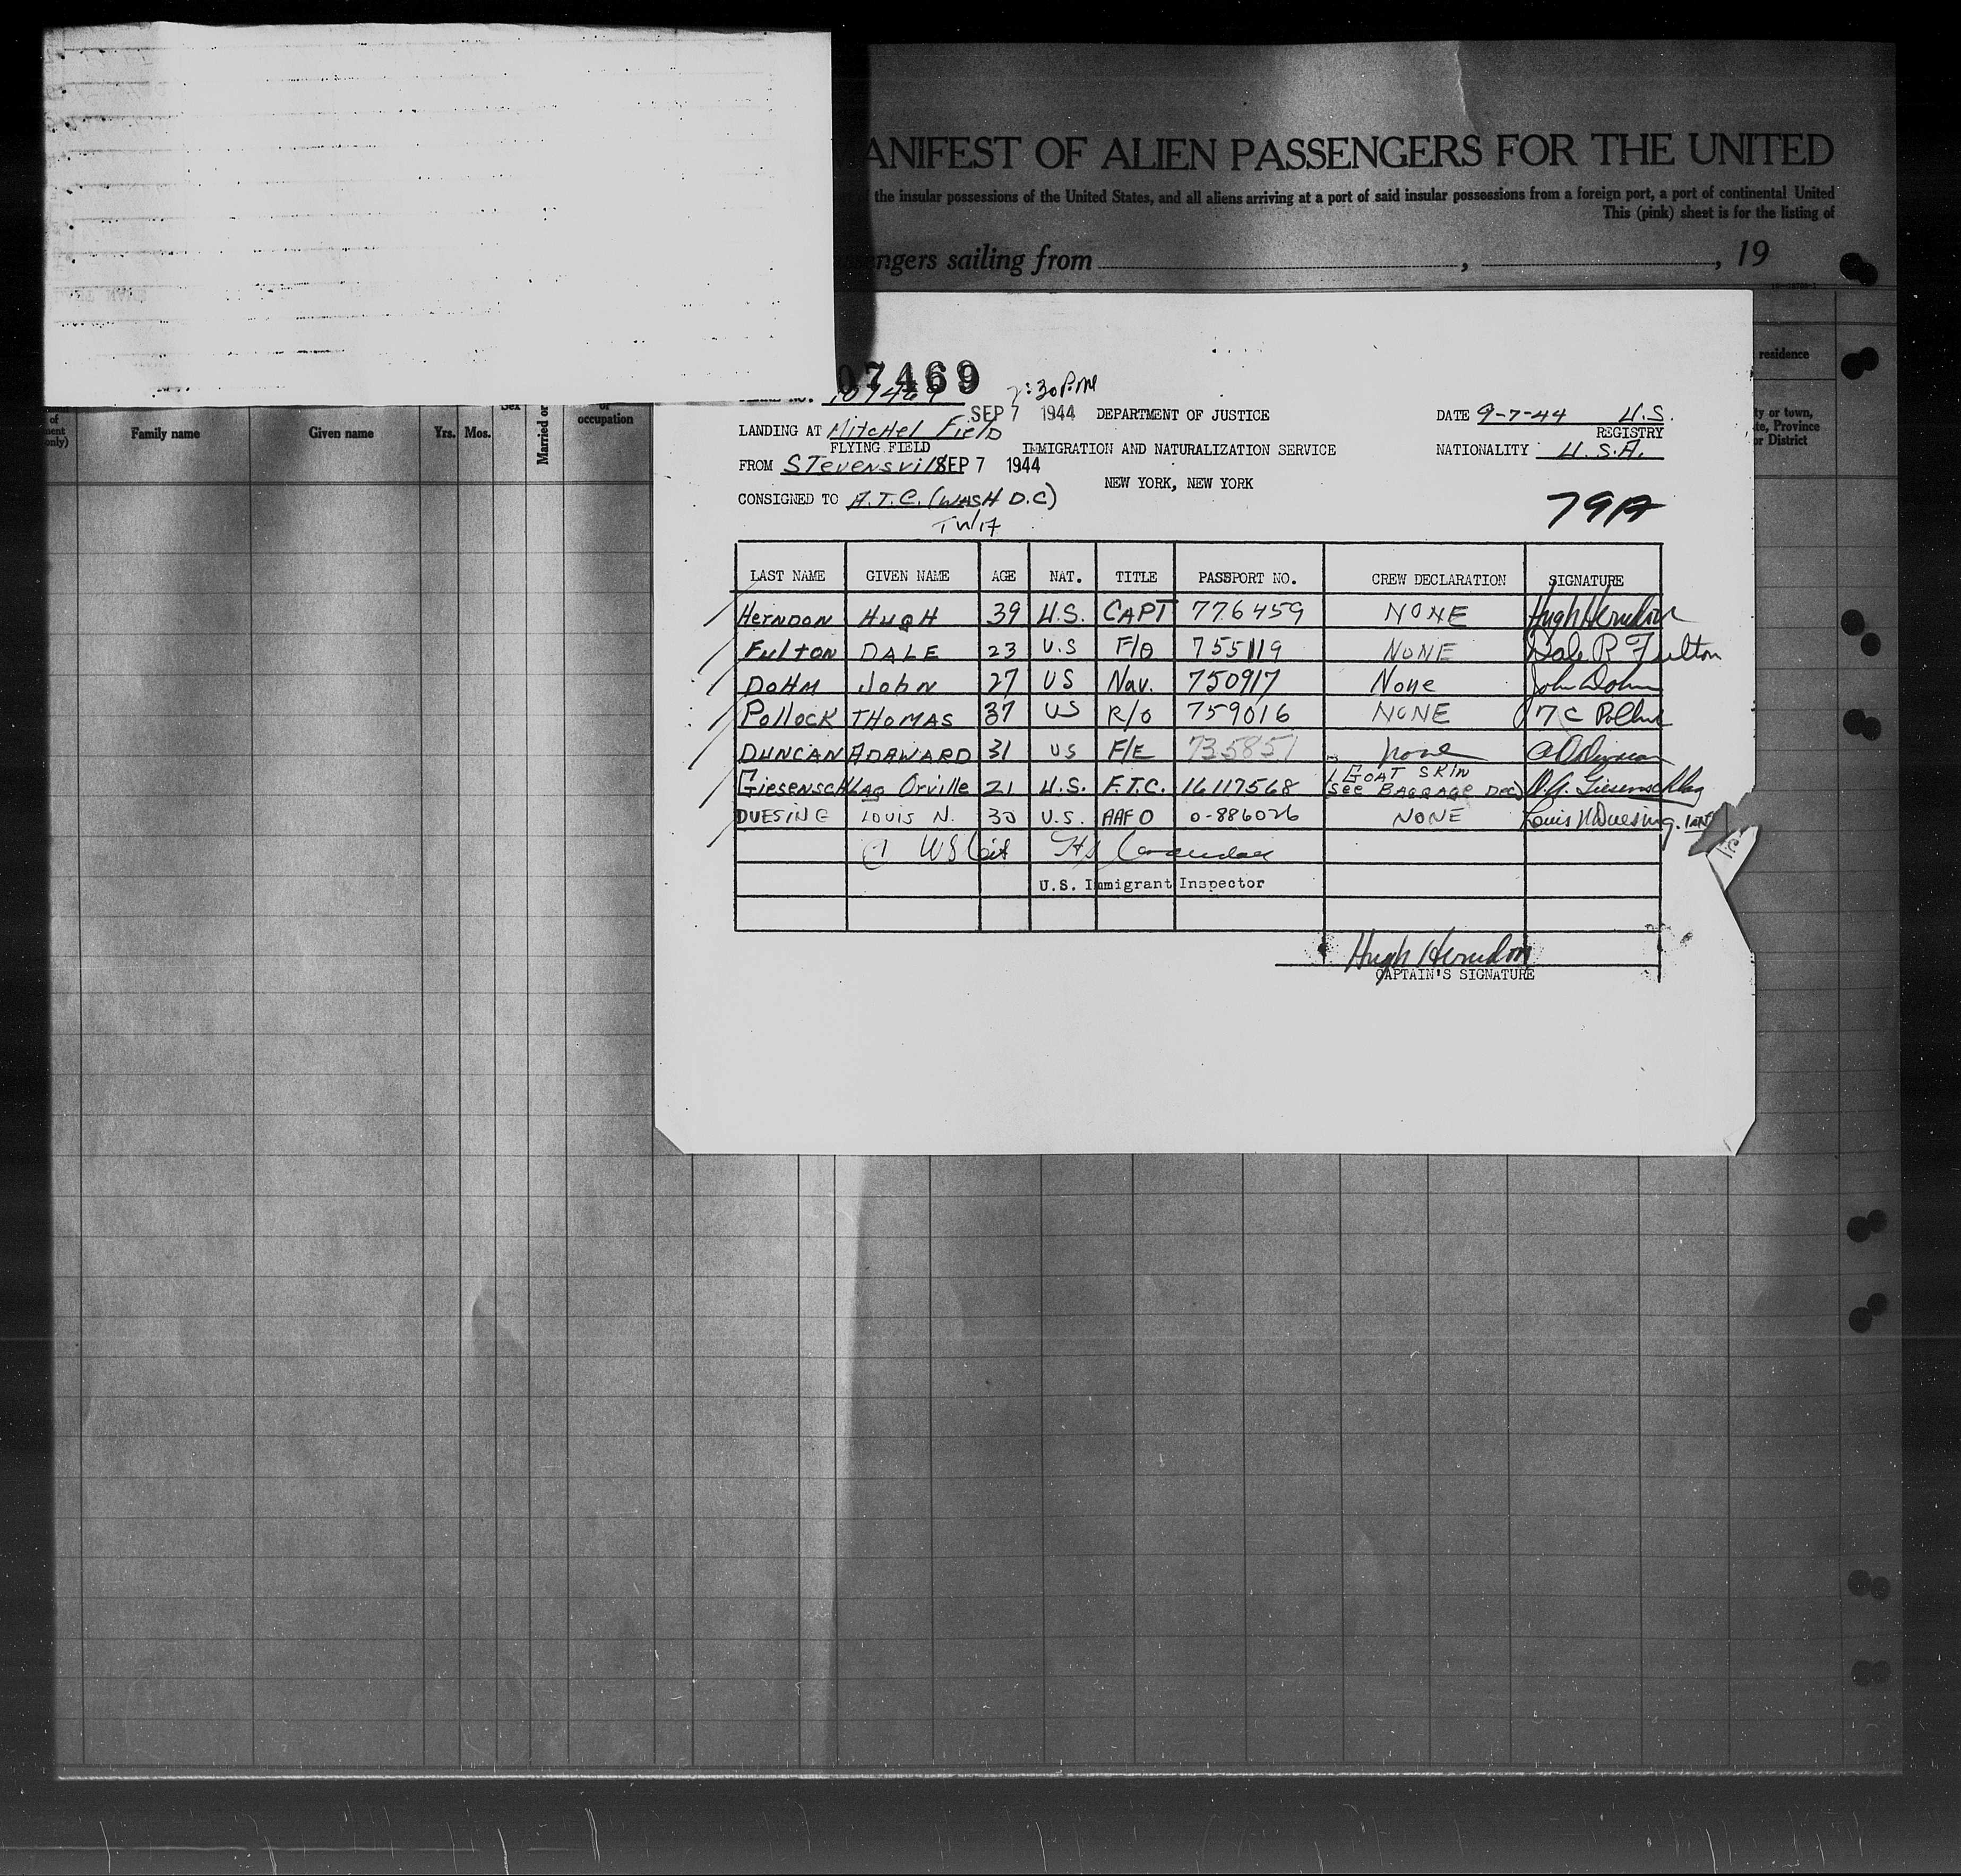 ANIFEST OF ALIEN PASSENGERS FOR THE UNITED
the insular possessions of the United States, and all aliens arriving at a port of said insular possessions from a foreign port, a port of continental United
This (pink) sheet is for the listing of
engers sailing from , , 19
residence
07469
107469 2:30 P.M
SEP 7 1944 DEPARTMENT OF JUSTICE DATE 9-7-44 U.S.
LANDING AT Mitchel Field REGISTRY
FLYING FIELD IMMIGRATION AND NATURALIZATION SERVICE NATIONALITY U.S.A.
FROM Stevensvill SEP 7 1944
NEW YORK, NEW YORK
CONSIGNED TO A.T.C. (WASH D.C)
79A
Family name Given name Yrs. Mos. Sex Married or occupation
ty or town,
te, Province
or District
LAST NAME GIVEN NAME AGE NAT. TITLE PASSPORT NO. CREW DECLARATION SIGNATURE
HERNDON HUGH 39 U.S. CAPT 776459 NONE Hugh Herndon
FULTON DALE 23 U.S F/O 755119 NONE Dale R Fulton
DOHM John 27 US Nav. 750917 None John Dohm
Pollock THOMAS 37 US R/O 759016 NONE T C Pollock
DUNCAN ADAWARD 31 US F/E 735851 none
Giesenschlag Orville 21 U.S. F.T.C. 16117568 1 GOAT SKIN
See BAGGAGE Dec) O.A. Giesenschlag
DUESING LOUIS N. 30 U.S. AAF O 0-886026 NONE Louis N Duesing.
U.S. Immigrant Inspector
Hugh Herndon
CAPTAIN'S SIGNATURE